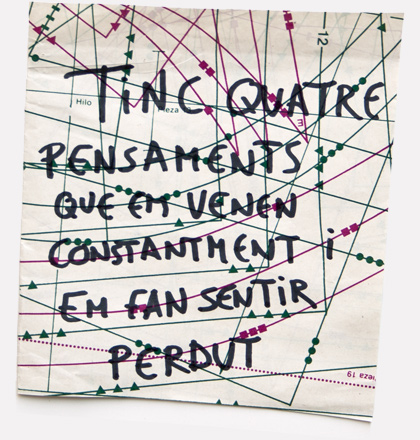 12
TiNC QUATRE
Hilo
ieza
E
PENSAMENTS
QUE EM VENEN
CONSTANTMENT i
EM FAN SENTIR
PERDUT
ieza 19